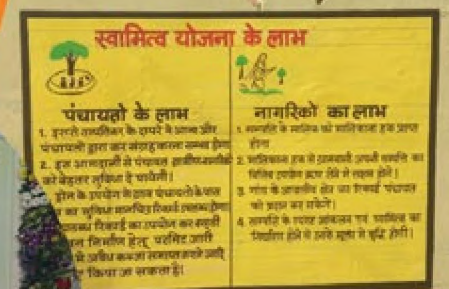 स्वामित्व योजना के लाभ
पंचायतो के लाभ
1. इससे सम्पत्तिकर के दायरे में आना और
पंचायतों द्वारा कर संग्रह करना सम्भव होगा
2. इस आमदनी से पंचायत
को बेहतर सुविधा दे पायेगी।
ड्रोन के उपयोग से ग्राम पंचायतो के पास
का सुविधा मानचित्र रिकार्ड उपलब्ध होगा
रिकार्ड का उपयोग कर
निर्माण हेतु परमिट जारी
में अवैध कब्जा समाप्त करने आदि
किया जा सकता है।
नागरिको का लाभ
1. सम्पत्ति के मालिक को मालिकाना हक प्राप्त
होगा
2. मालिकाना हक से ग्रामवासी अपनी सम्पत्ति का
वित्तिय उपयोग ऋण लेने में सक्षम होंगे।
3. गांव के आवासीय क्षेत्र का रिकार्ड पंचायत
को प्राप्त कर सकेंगे।
4. सम्पत्ति के स्पष्ट आंकलन एवं स्वामित्व का
निर्धारण होने से उसके मूल्य में वृद्धि होगी।